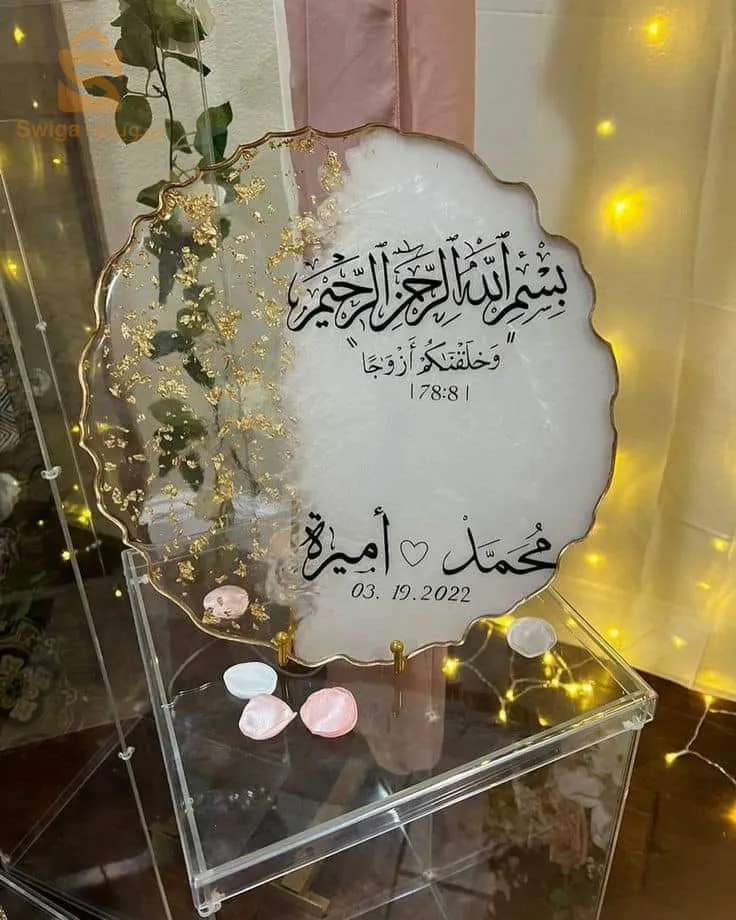 Swiga سويقة
بِسْمِ ٱللَّهِ ٱلرَّحْمَٰنِ ٱلرَّحِيمِ
"وَخَلَقْنَٰكُمْ أَزْوَٰجًا"
|78:8|
مُحَمَّدْ ♡ أميرة
03. 19.2022